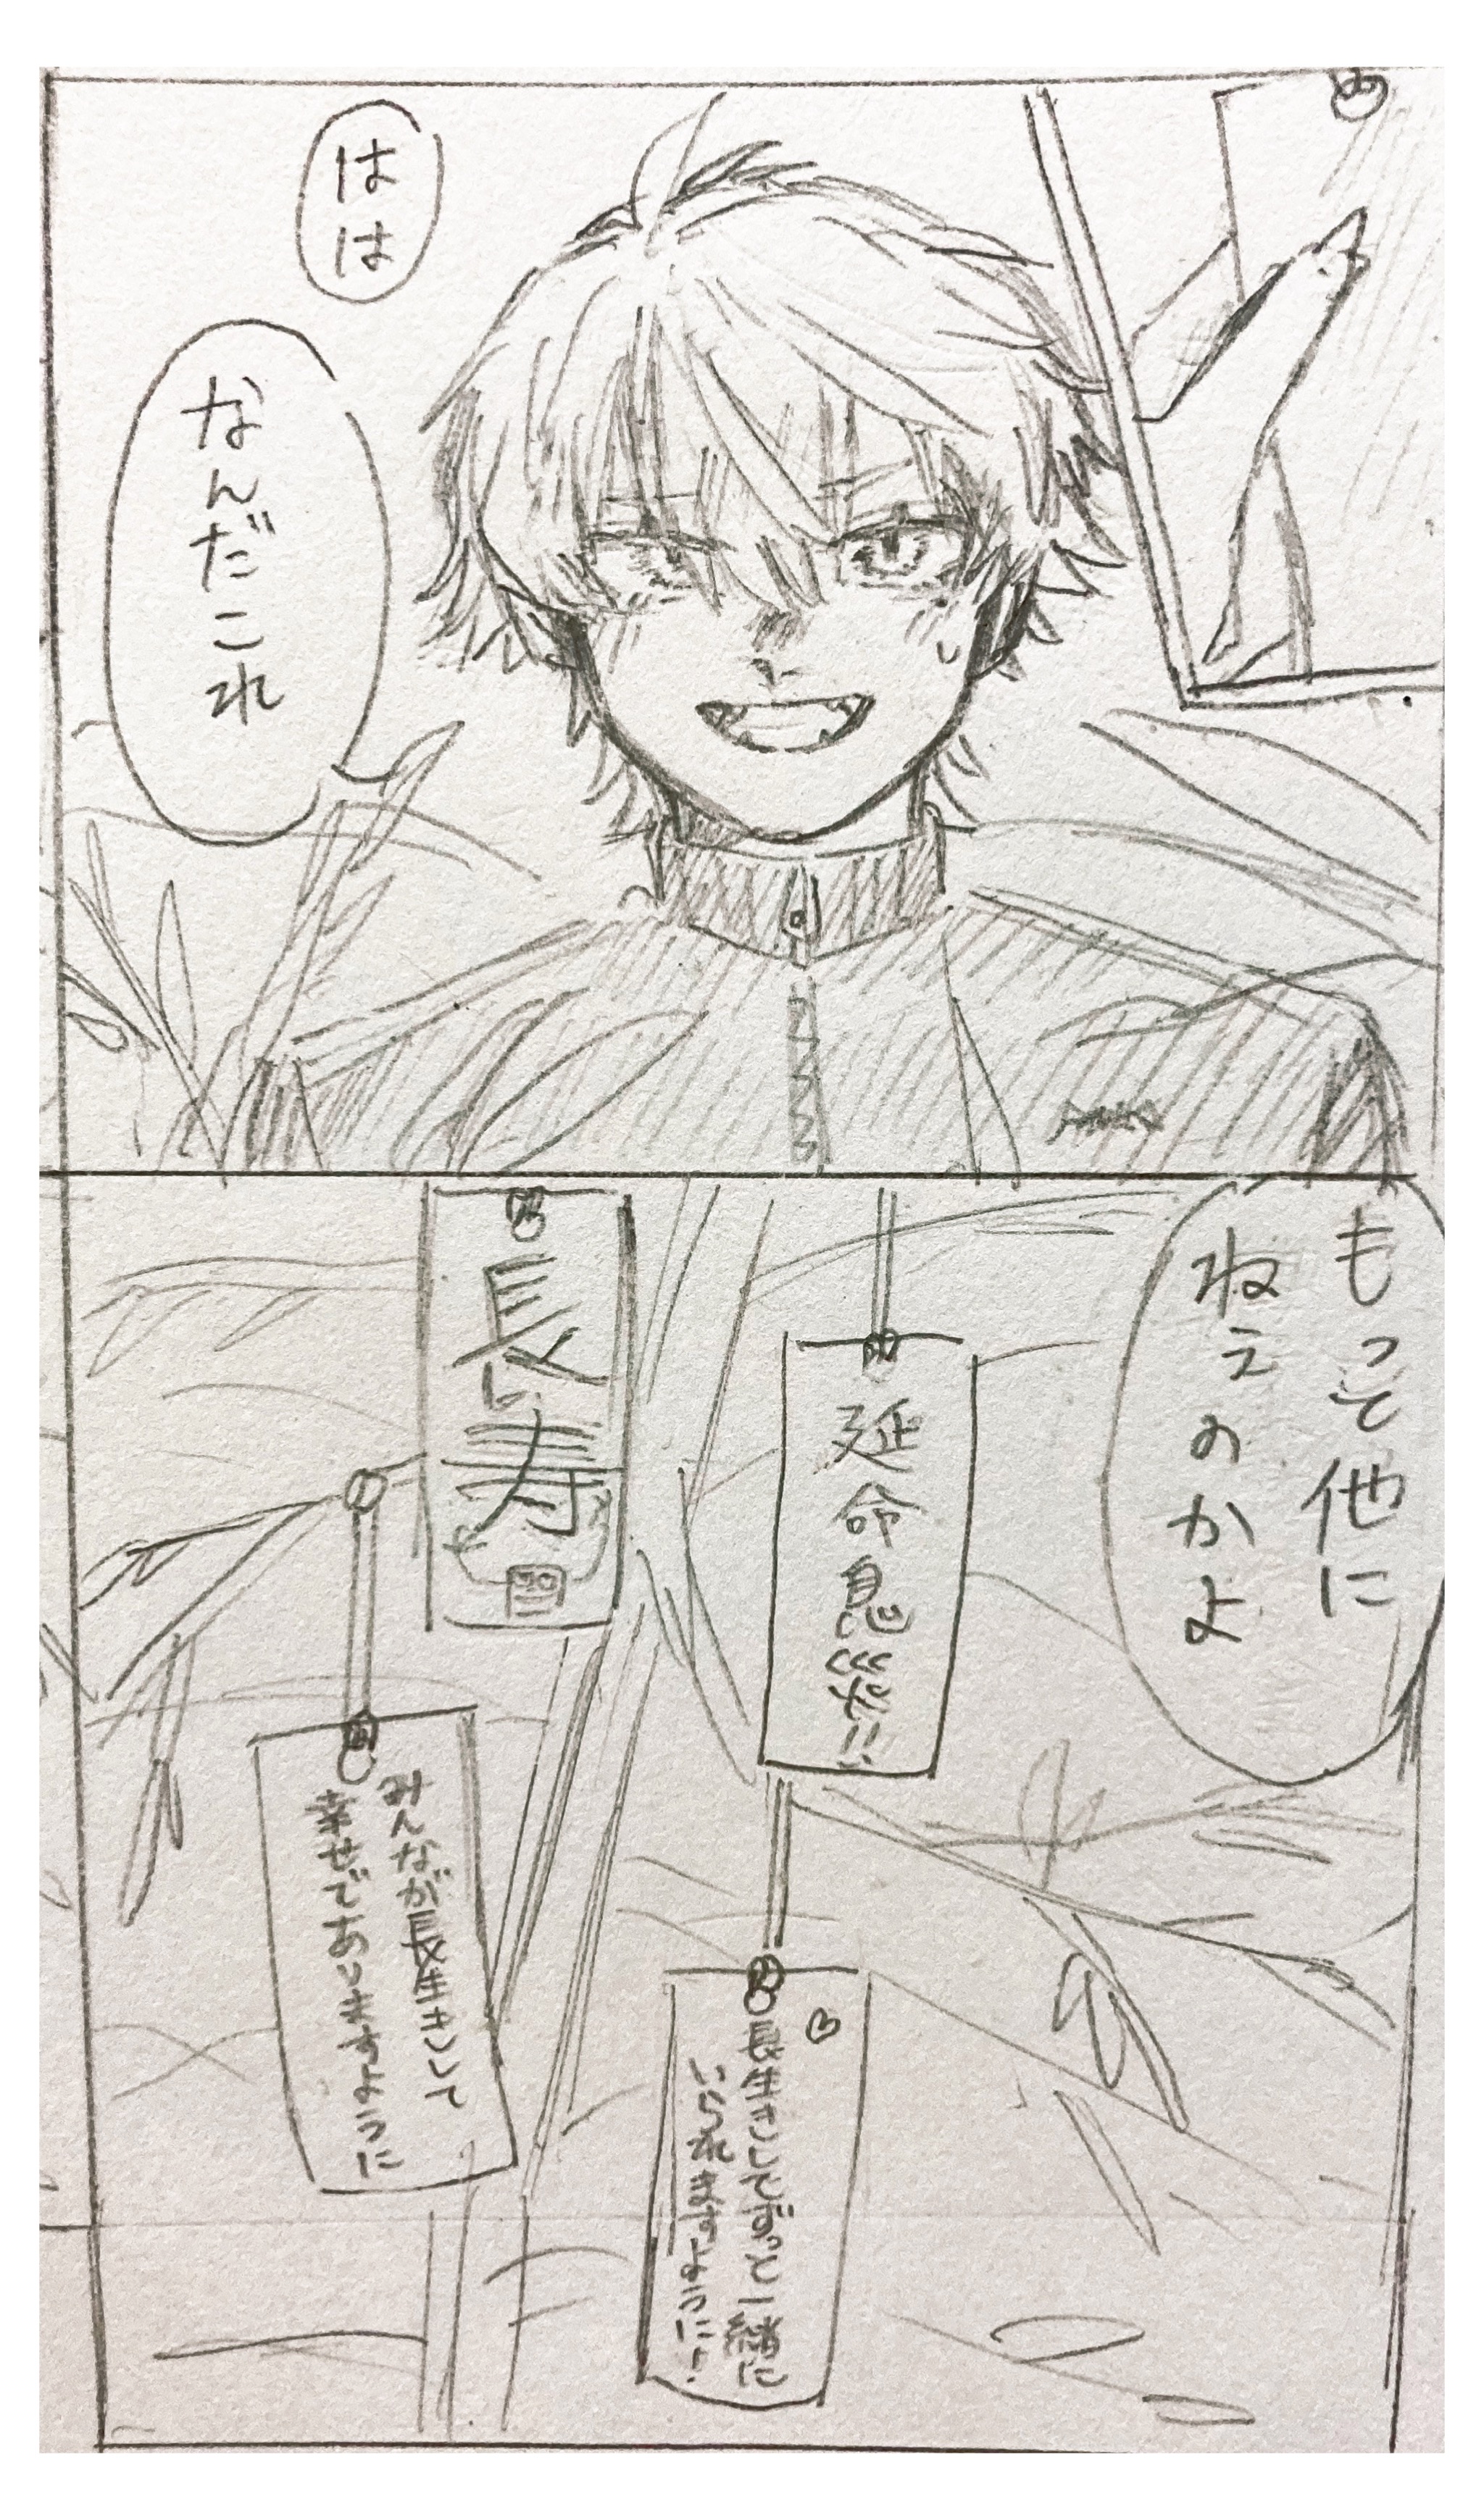 はは
なんだこれ
もっと他に
ねぇのかよ
延命息災に
長い寿
みんなが長生きして
幸せでありますように
長生きしてずっと一緒に
いられますように